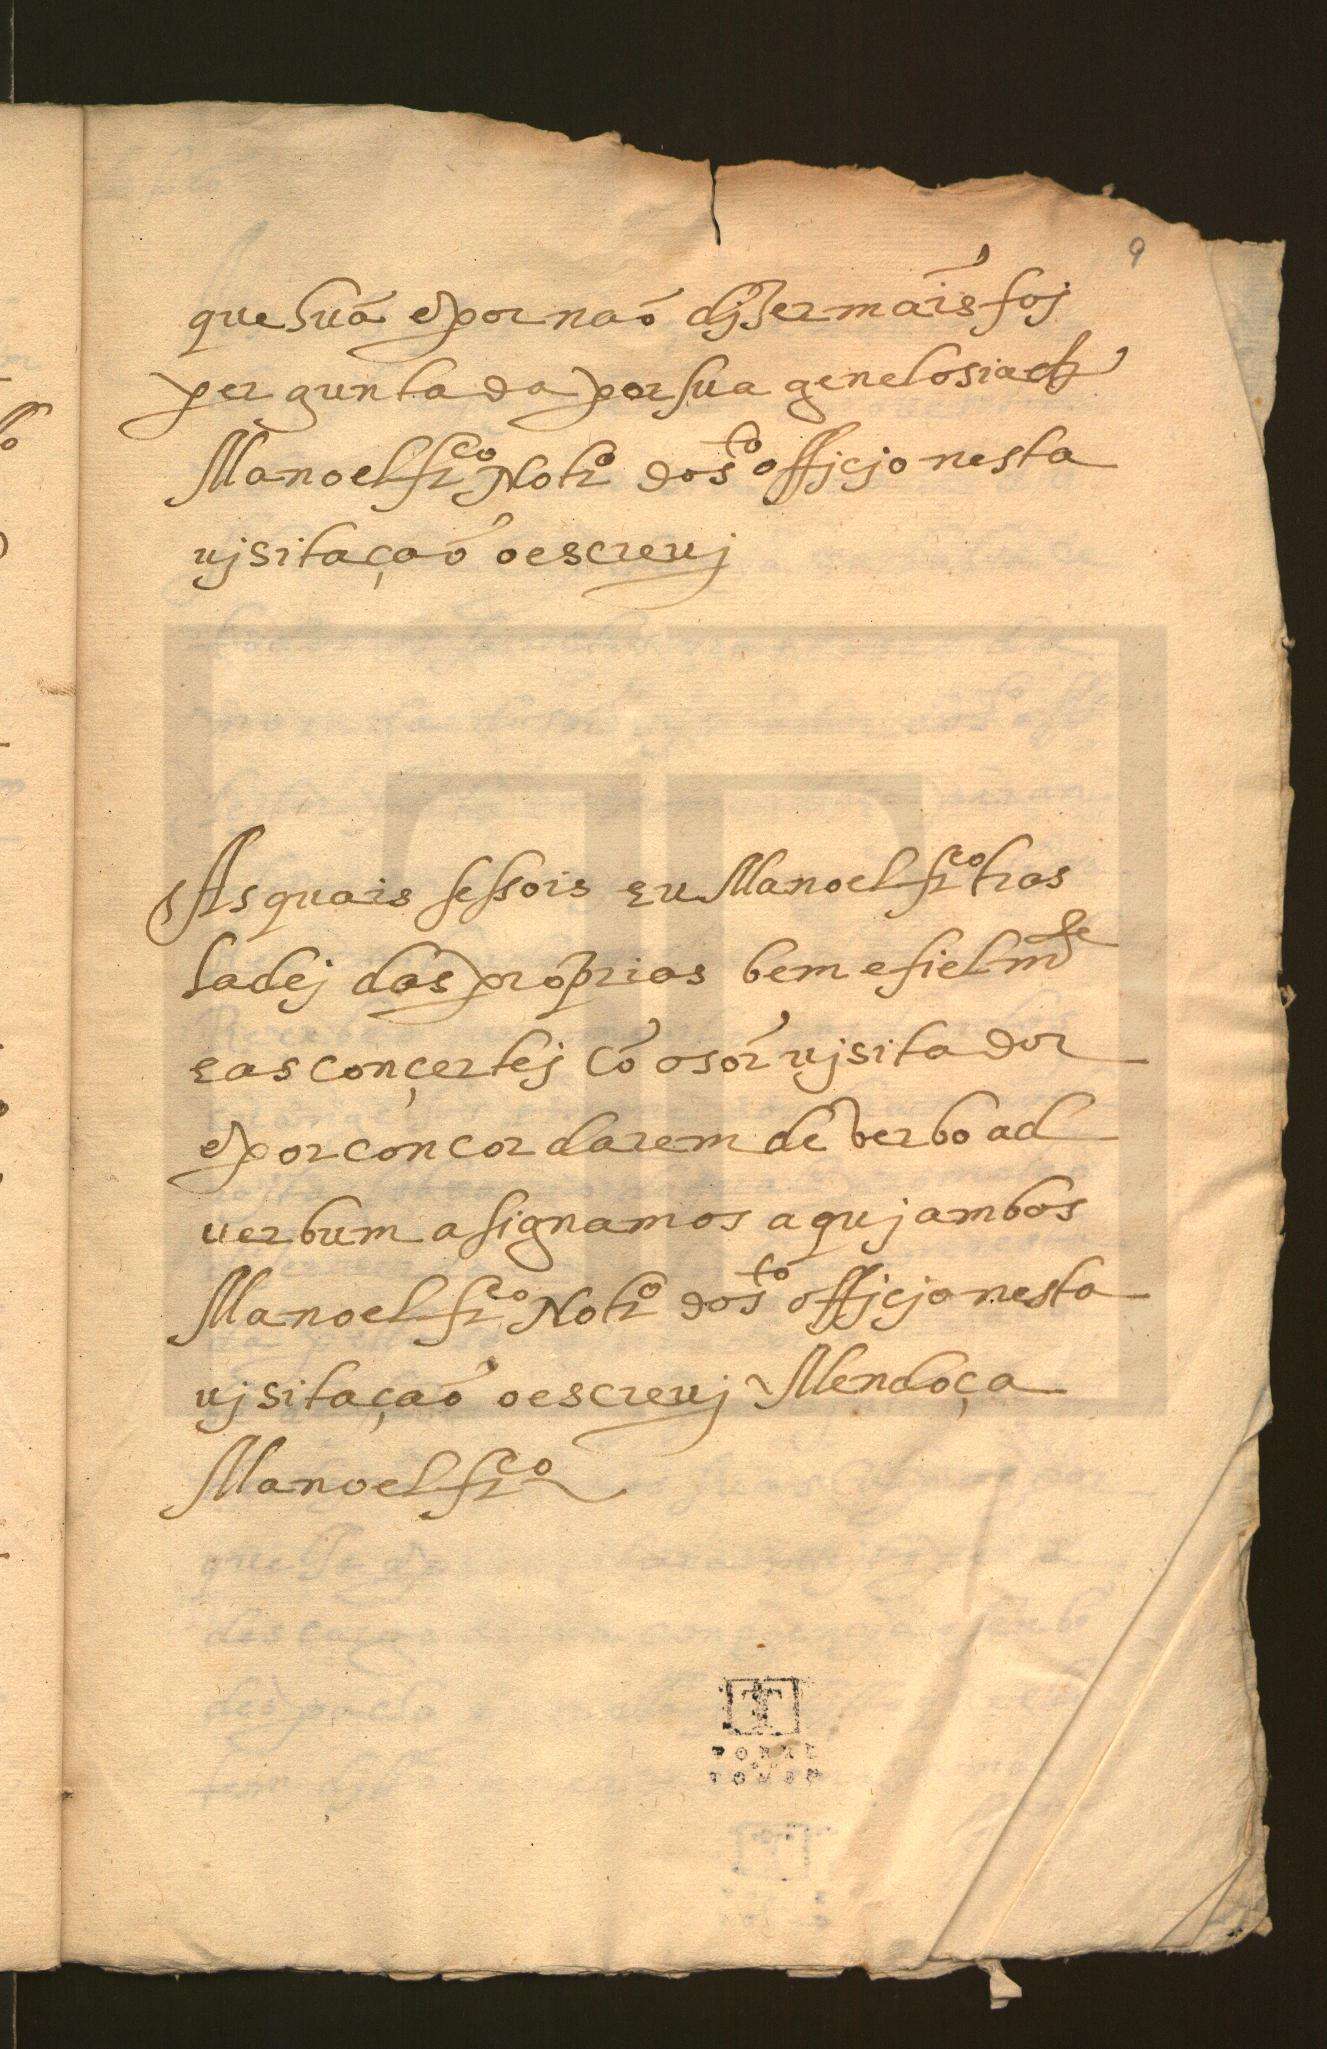 9
que suã e por naõ djzer mais foj
perguntada por sua genelosia etc
Manoel frco Notro do sto officjo nesta
ujsitaçaõ o escreuj
As quais sessois eu Manoel frco tras
ladej das proprias bem e fielmte
e as conçertej cõ o sor ujsitador
e por concordarem de verbo ad
uerbum asignamos aquj ambos
Manoel frco Notro do sto officjo nesta
ujsitaçaõ o escreuj Mendoça
Manoel frco
TORRE
DO
TOMBO